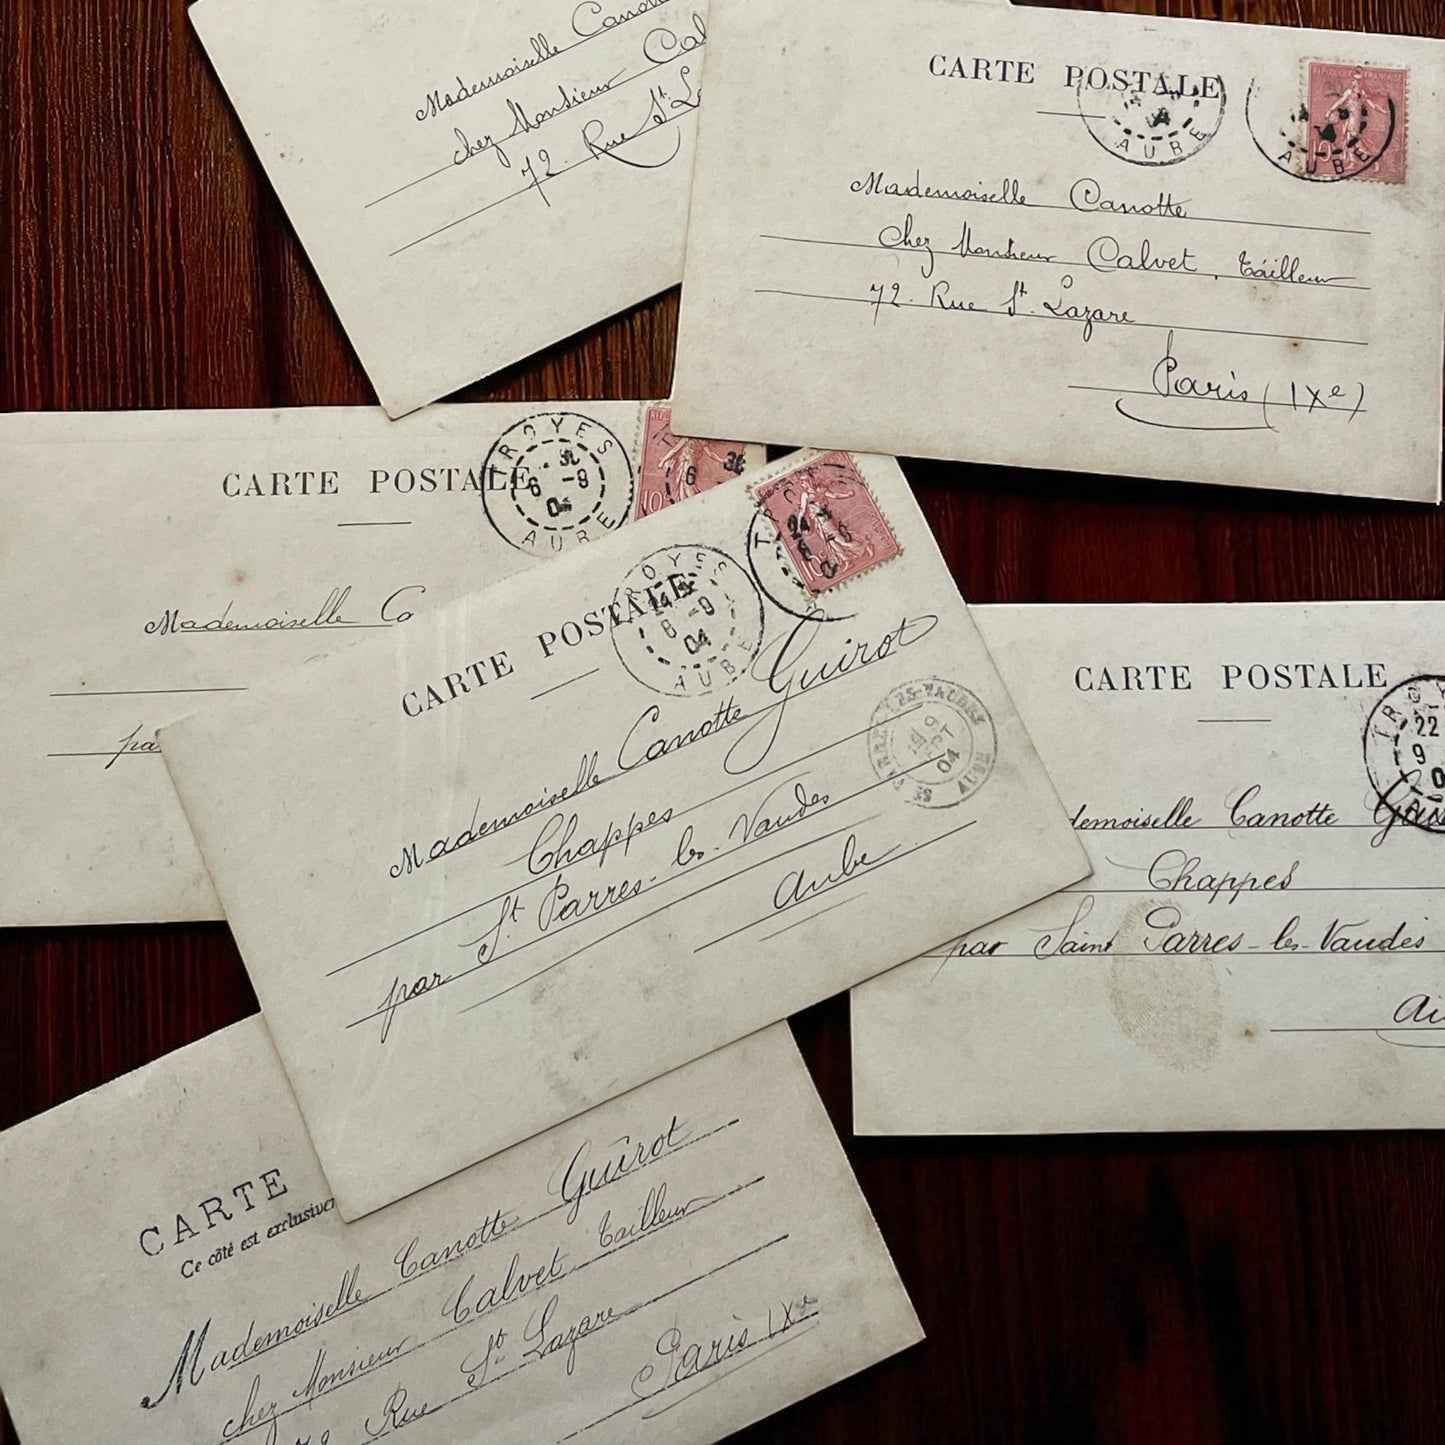 Mademoiselle
chez Monsieur Cal
72. Rue St. L
CARTE POSTALE
AUBE
AUBE
Mademoiselle Canotte
chez Monsieur Calvet, Tailleur
72. Rue St. Lazare
Paris (IXe)
CARTE POSTALE
TROYES
6 -9
AUBE
10
6
Mademoiselle Ca
pa
CARTE POSTALE
TROYES
6 -9
04
AUBE
10c
Mademoiselle Canotte Guirot
Chappes
par St. Parres-les-Vaudes
Aube
ST PARRES-LES-VAUDES
9
SEPT
04
AUBE
CARTE POSTALE
TROY
22
9
demoiselle Canotte Gui
Chappes
par Saint Parres-les-Vaudes
Au
CARTE
Ce côté est exclusive
Mademoiselle Canotte Guirot
chez Monsieur Calvet Tailleur
72 Rue St. Lazare
Paris IXe